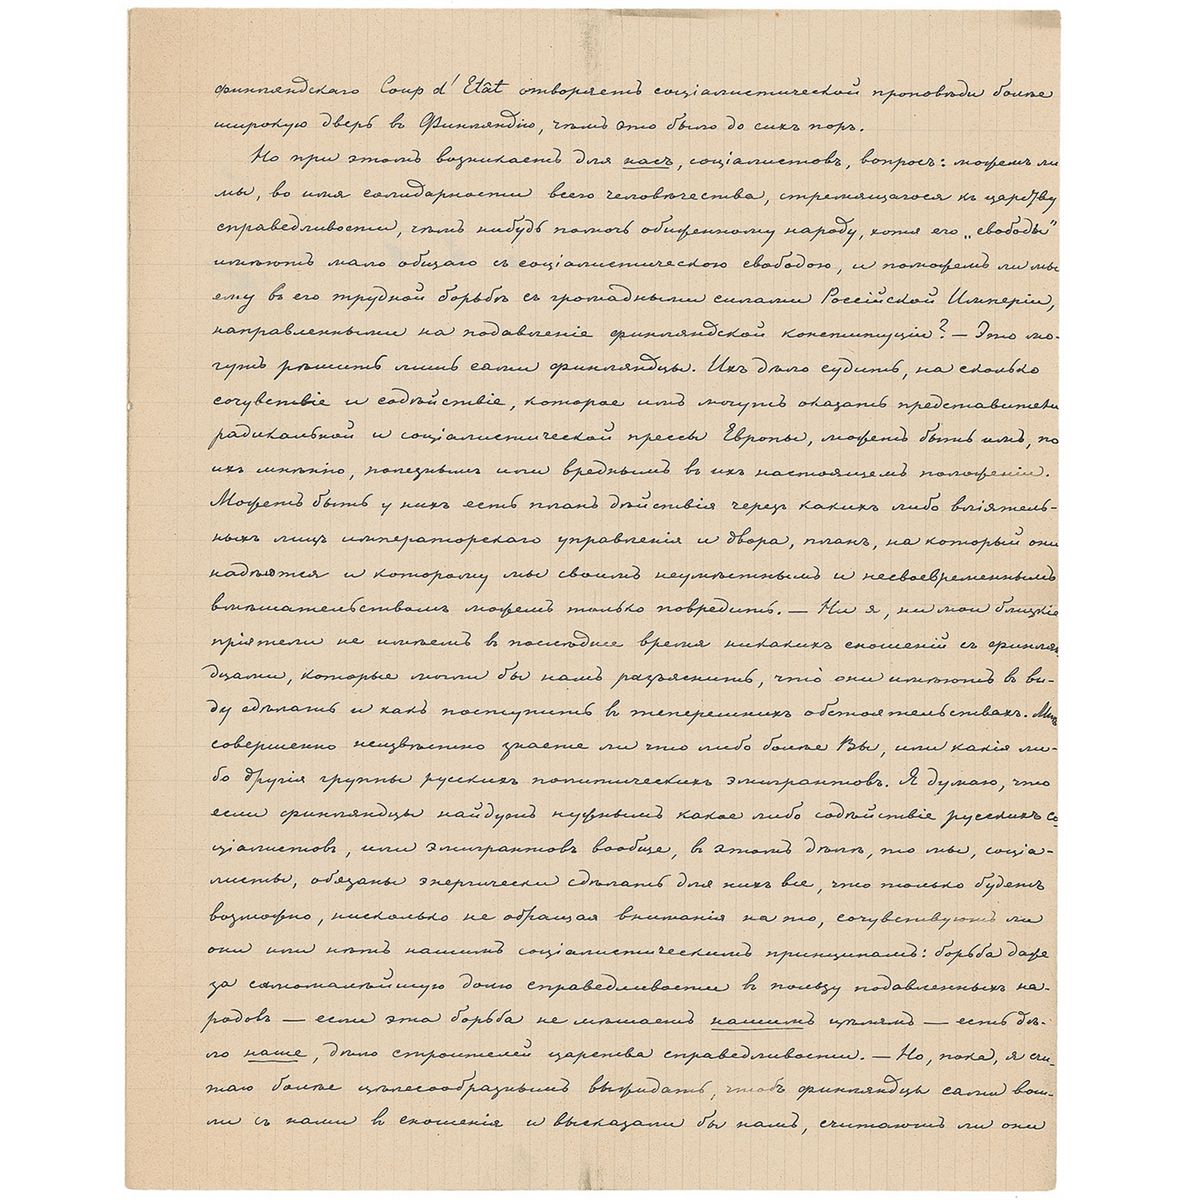 финляндскаго Coup d'Etât отворяетъ соціалистической проповѣди болѣе
широкую дверь въ Финляндію, чѣмъ это было до сихъ поръ.
Но при этомъ возникаетъ для насъ, соціалистовъ, вопросъ: можемъ ли
мы, во имя солидарности всего человѣчества, стремящагося къ царству
справедливости, чѣмъ нибудь помочь обиженному народу, хотя его „свободы"
имѣютъ мало общаго съ соціалистическою свободою, и поможемъ ли мы
ему въ его трудной борьбѣ съ громадными силами Россійской Имперіи,
направленными на подавленіе финляндской конституціи? — Это мо-
гутъ рѣшить лишь сами финляндцы. Ихъ дѣло судить, на сколько
сочувствіе и содѣйствіе, которое имъ могутъ оказать представители
радикальной и соціалистической прессы Европы, можетъ быть имъ, по
ихъ мнѣнію, полезнымъ или вреднымъ въ ихъ настоящемъ положеніи.
Можетъ быть у нихъ есть планъ дѣйствія черезъ какихъ либо вліятель-
ныхъ лицъ императорскаго управленія и двора, планъ, на который они
надѣятся и которому мы своимъ неумѣстнымъ и несвоевременнымъ
вмѣшательствомъ можемъ только повредить. — Ни я, ни мои близкіе
пріятели не имѣемъ въ послѣднее время никакихъ сношеній съ финлян-
дцами, которые могли бы намъ разъяснить, что̀ они имѣютъ въ ви-
ду сдѣлать и какъ поступить въ теперешнихъ обстоятельствахъ. Мнѣ
совершенно неизвѣстно знаете ли что либо болѣе Вы, или какія ли-
бо другія группы русскихъ политическихъ эмигрантовъ. Я думаю, что
если финляндцы найдутъ нужнымъ какое либо содѣйствіе русскихъ со-
ціалистовъ, или эмигрантовъ вообще, въ этомъ дѣлѣ, то мы, соціа-
листы, обязаны энергически сдѣлать для нихъ все, что только будетъ
возможно, нисколько не обращая вниманія на то, сочувствуютъ ли
они или нѣтъ нашимъ соціалистическимъ принципамъ: борьба даже
за самомалѣйшую долю справедливости въ пользу подавленныхъ на-
родовъ — если эта борьба не мѣшаетъ нашимъ цѣлямъ — есть дѣ-
ло наше, дѣло строителей царства справедливости. — Но, пока, я счи-
таю болѣе цѣлесообразнымъ выжидать, чтобъ финляндцы сами вош-
ли съ нами въ сношенія и высказали бы намъ, считаютъ ли они